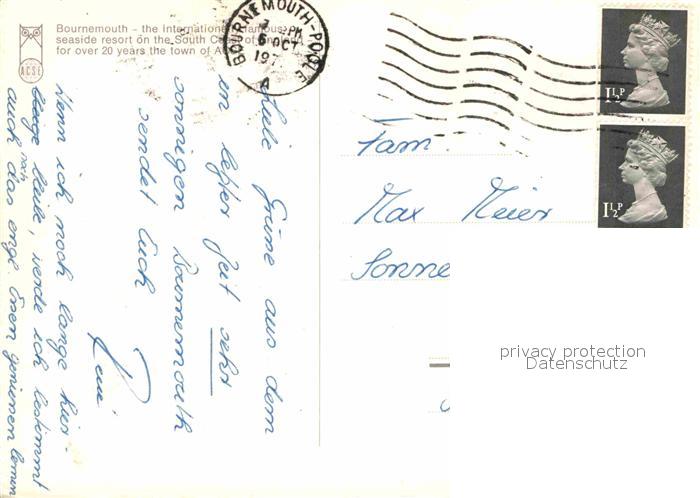 Bournemouth - the International famous
seaside resort on the South Coast of
for over 20 years the town of
ACSE
BOURNEMOUTH-POOLE
PM
6 OCT
197
A
1½P
1½P
Liebe Grüsse aus dem
in letzter Zeit sehr
sonnigen Bournemouth
sendet Euch
Wenn ich noch lange hier
bleibe, werde ich bestimmt
auch noch das engl.
Fam.
Max Meier
Sonne
privacy protection
Datenschutz